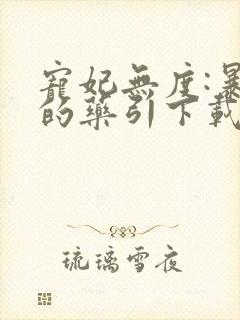 寵妃無度:暴
的藥引下載
琉璃雪夜